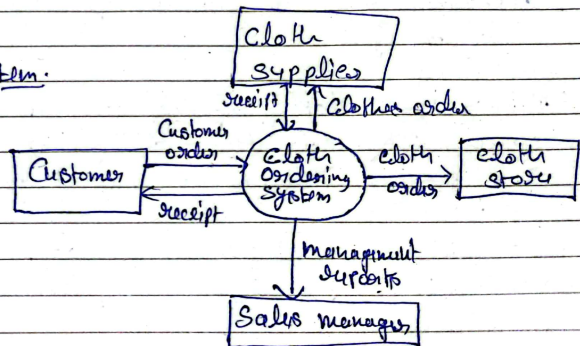 Cloth
supplier
tem.
receipt
Clothes order
Customer
order
Customer
receipt
Cloth
Ordering
System
Cloth
order
cloth
store
management
reports
Sales manager